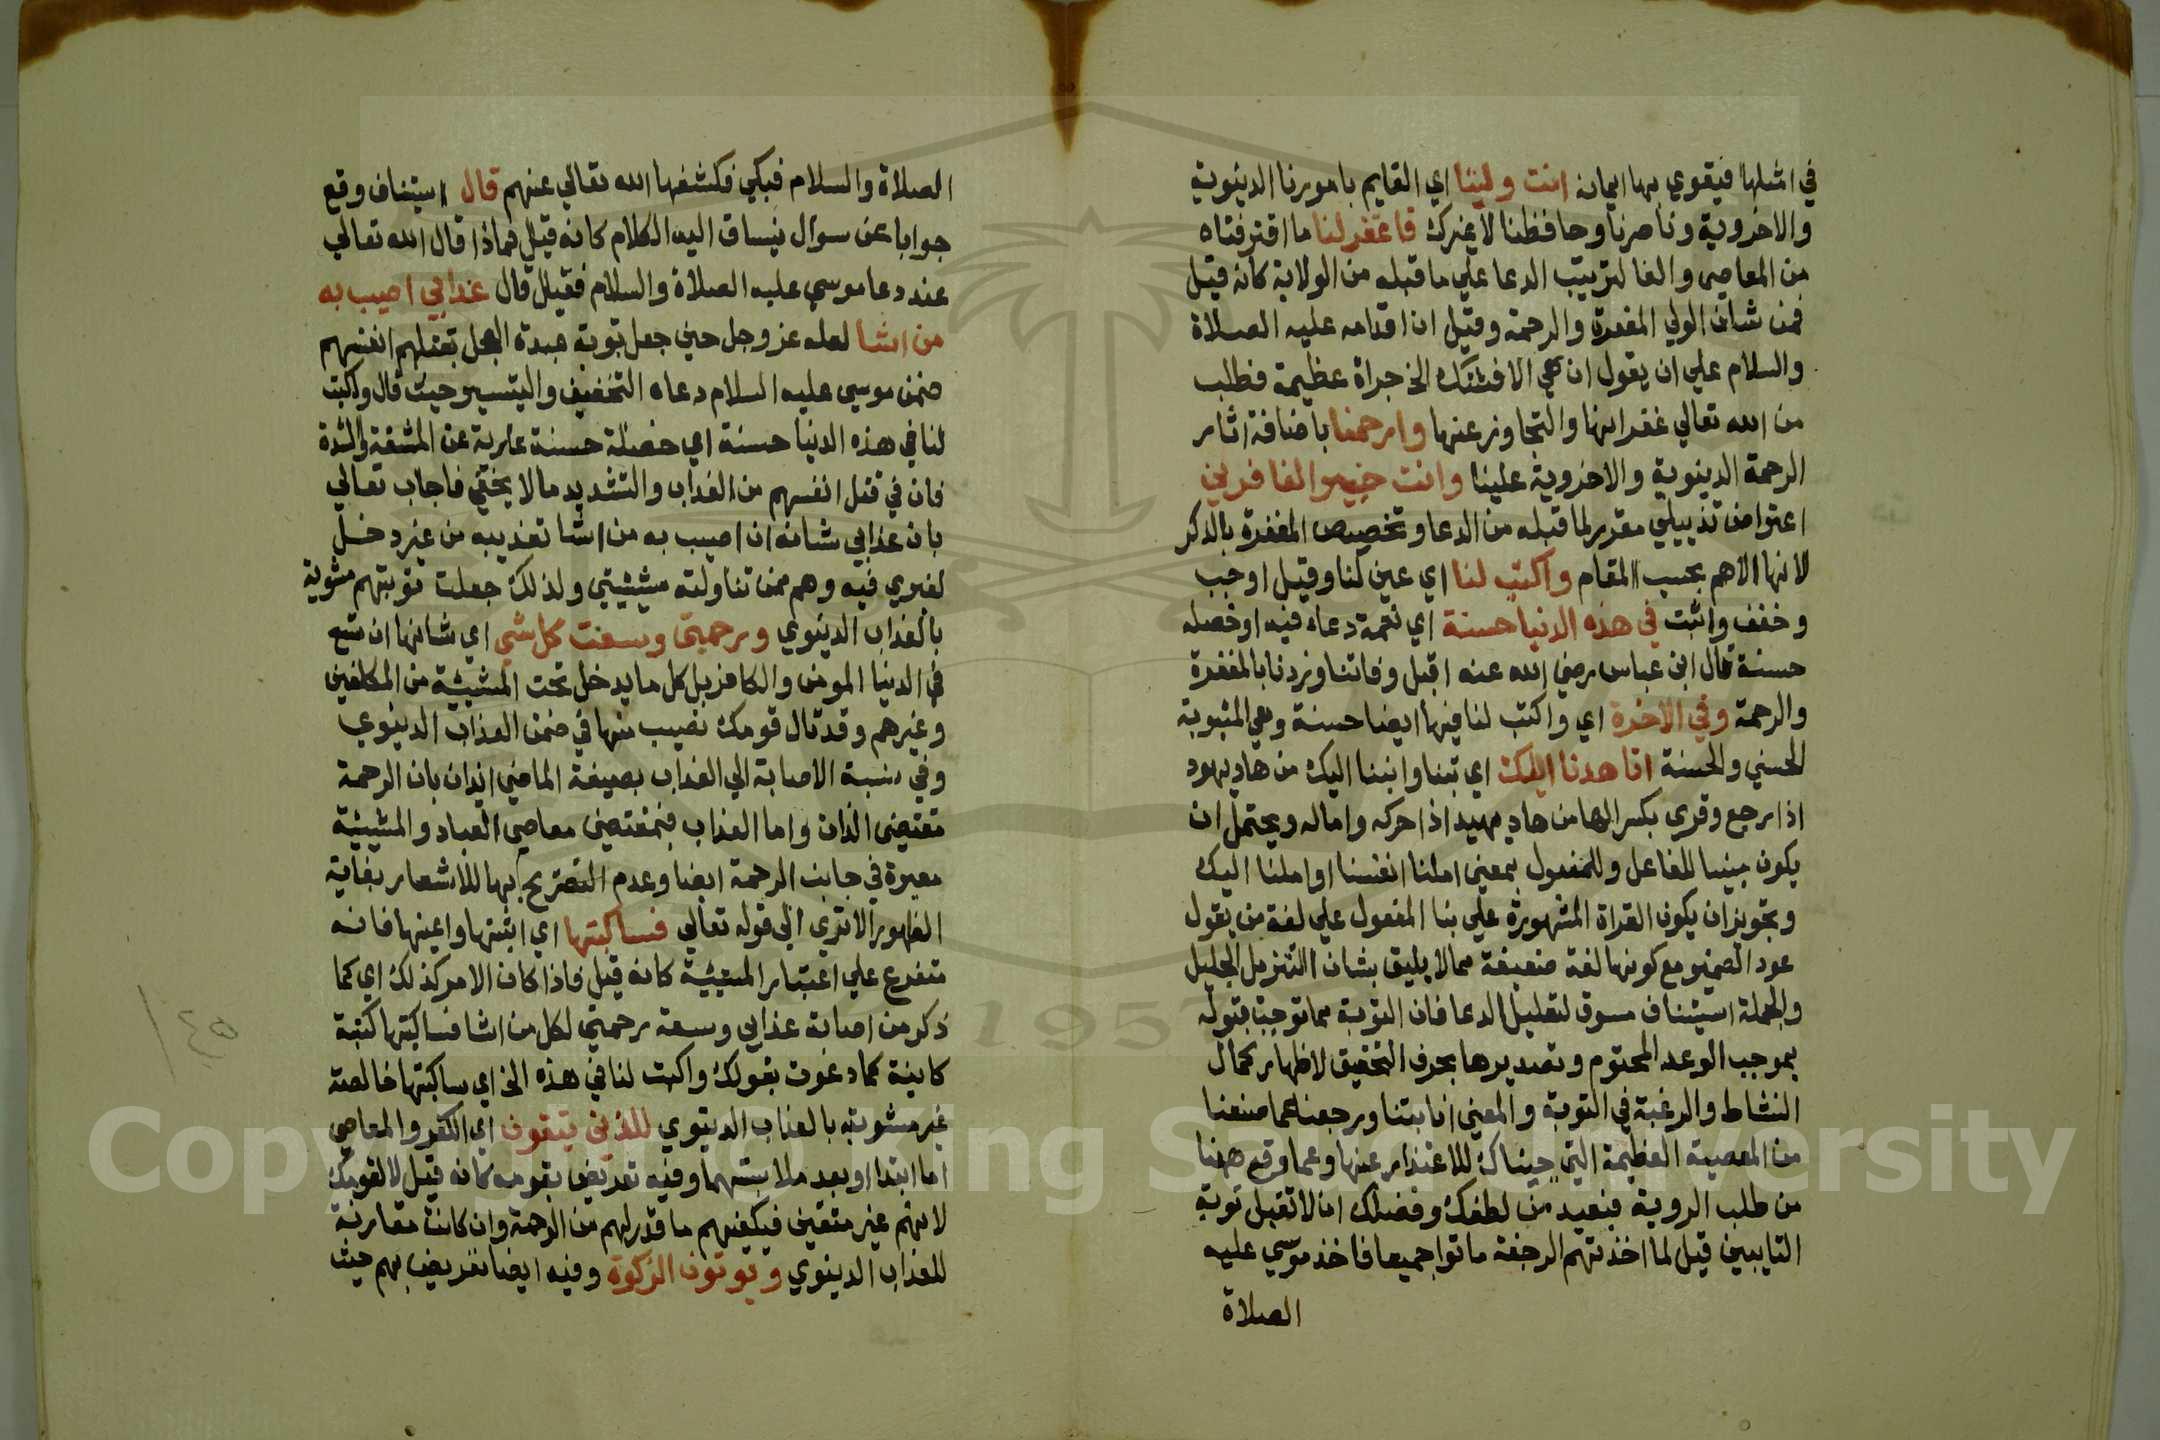 في امثلها فيقوي بها ايمانه انت ولينا اي القايم بامورنا الدنيوية
والاخروية وناصرنا وحافظنا لا غيرك فاغفر لنا ما اقترفناه
من المعاصي والفا لترتيب الدعا علي ما قبله من الولاية كانه قيل
فمن شان الولي المغفرة والرحمة وقيل ان اقدامه عليه الصلاة
والسلام علي ان يقول ان هي الا فتنتك الخ جراة عظيمة فطلب
من الله تعالي غفرانها والتجاوز عنها وارحمنا باضافة اثار
الرحمة الدنيوية والاخروية علينا وانت خير الغافرين
اعتراض تذييلي مقرر لما قبله من الدعا وتخصيص المغفرة بالذكر
لانها الاهم بحسب المقام واكتب لنا اي عين لنا وقيل اوجب
وخفف واثبت في هذه الدنيا حسنة اي نعمة دعاه فيه او خصله
حسنة قال ابن عباس رضي الله عنه اقبل وفاتنا وزدنا بالمغفرة
والرحمة وفي الاخرة اي واكتب لنا فيها ايضا حسنة وهي المثوبة
الحسني والحسنة انا هدنا اليك اي تبنا وانبنا اليك من هاد يهود
اذا رجع وقري بكسر الها من هاد يهيد اذا حركه واماله ويحتمل ان
يكون مبنيا للفاعل وللمفعول بمعني املنا انفسنا او املنا اليك
وتجويز ان يكون القراة المشهورة علي بنا المفعول علي لغة من يقول
عود المريض مع كونها لغة ضعيفة مما لا يليق بشان التنزيل الجليل
والجملة استيناف مسوق لتعليل الدعا فان التوبة مما توجب قبوله
بموجب الوعد المحتوم وتصديرها بحرف التحقيق لاظهار كمال
النشاط والرغبة في التوبة والمعني انا تبنا ورجعنا عما صنعنا
من المعصية العظيمة التي جيناك للاعتذار عنها وعما وقع ههنا
من طلب الروية فبعيد من لطفك وفضلك ان لا تقبل توبة
التايبين قيل لما اخذتهم الرجفة ماتوا جميعا فاخذ موسي عليه
الصلاة
الصلاة والسلام فبكي فكشفها الله تعالي عنهم قال استيناف وقع
جوابا عن سوال ينساق اليه الكلام كانه قيل فماذا قال الله تعالي
عند دعا موسي عليه الصلاة والسلام فقيل قال عذابي اصيب به
من اشا لعله عز وجل حين جعل توبة عبدة العجل بقتلهم انفسهم
ضمن موسي عليه السلام دعاه التخفيف والتيسير حيث قال واكتب
لنا في هذه الدنيا حسنة اي خصلة حسنة عارية عن المشقة والشدة
فان في قتل انفسهم من العذاب والتشديد ما لا يخفي فاجاب تعالي
بان عذابي شانه ان اصيب به من اشا تعذيبه من غير دخل
لغيري فيه وهم ممن تناولته مشيئتي ولذلك جعلت توبتهم مشوبة
بالعذاب الدنيوي ورحمتي وسعت كل شي اي شانها ان تسع
في الدنيا المومن والكافر بل كل ما يدخل تحت المشيئة من المكلفين
وغيرهم وقد نال قومك نصيب منها في ضمن العذاب الدنيوي
وفي نسبة الاصابة الي العذاب بصيغة الماضي ايذان بان الرحمة
مقتضي الذات واما العذاب فبمقتضي معاصي العباد والمشيئة
معبرة في جانب الرحمة ايضا وعدم التصريح بها للاشعار بغاية
الظهور الا تري الي قوله تعالي فساكتبها اي اثبتها واعينها فانه
متفرع علي اعتبار المشيئة كانه قيل فاذا كان الامر كذلك اي كما
ذكر من اصابة عذابي وسعة رحمتي لكل من اشا فساكتبها كتبة
كاينة كما دعوت بقولك واكتب لنا في هذه الخ اي ساكتبها خالصة
غير مشوبة بالعذاب الدنيوي للذين يتقون اي الكفر والمعاصي
اما ابتدا او بعد ملابستهما وفيه تعريض بقومه كانه قيل لا لقومك
لانهم غير متقين فيكفيهم ما قدر لهم من الرحمة وان كانت مقارنة
للعذاب الدنيوي ويوتون الزكوة وفيه ايضا تعريض بهم حيث
Copyright © King Saud University
1957